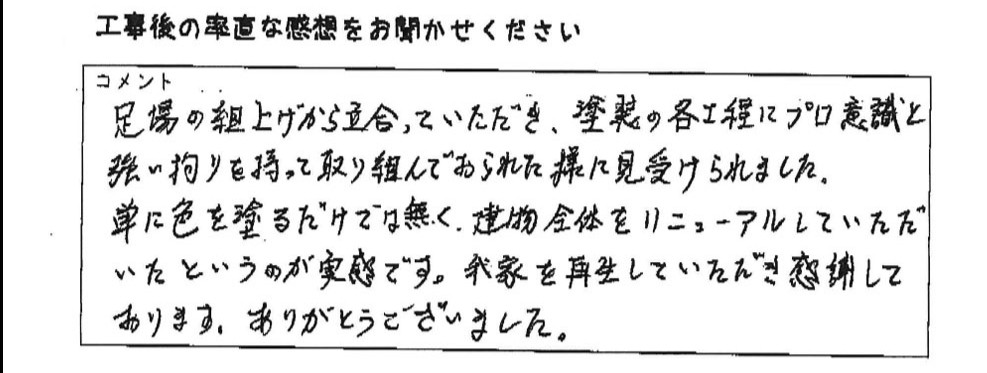 工事後の率直な感想をお聞かせください
コメント
足場の組上げから立合っていただき、塗装の各工程にプロ意識と
強い拘りを持って取り組んでおられた様に見受けられました。
単に色を塗るだけでは無く、建物全体をリニューアルしていただ
いたというのが実感です。我家を再生していただき感謝して
おります。ありがとうございました。